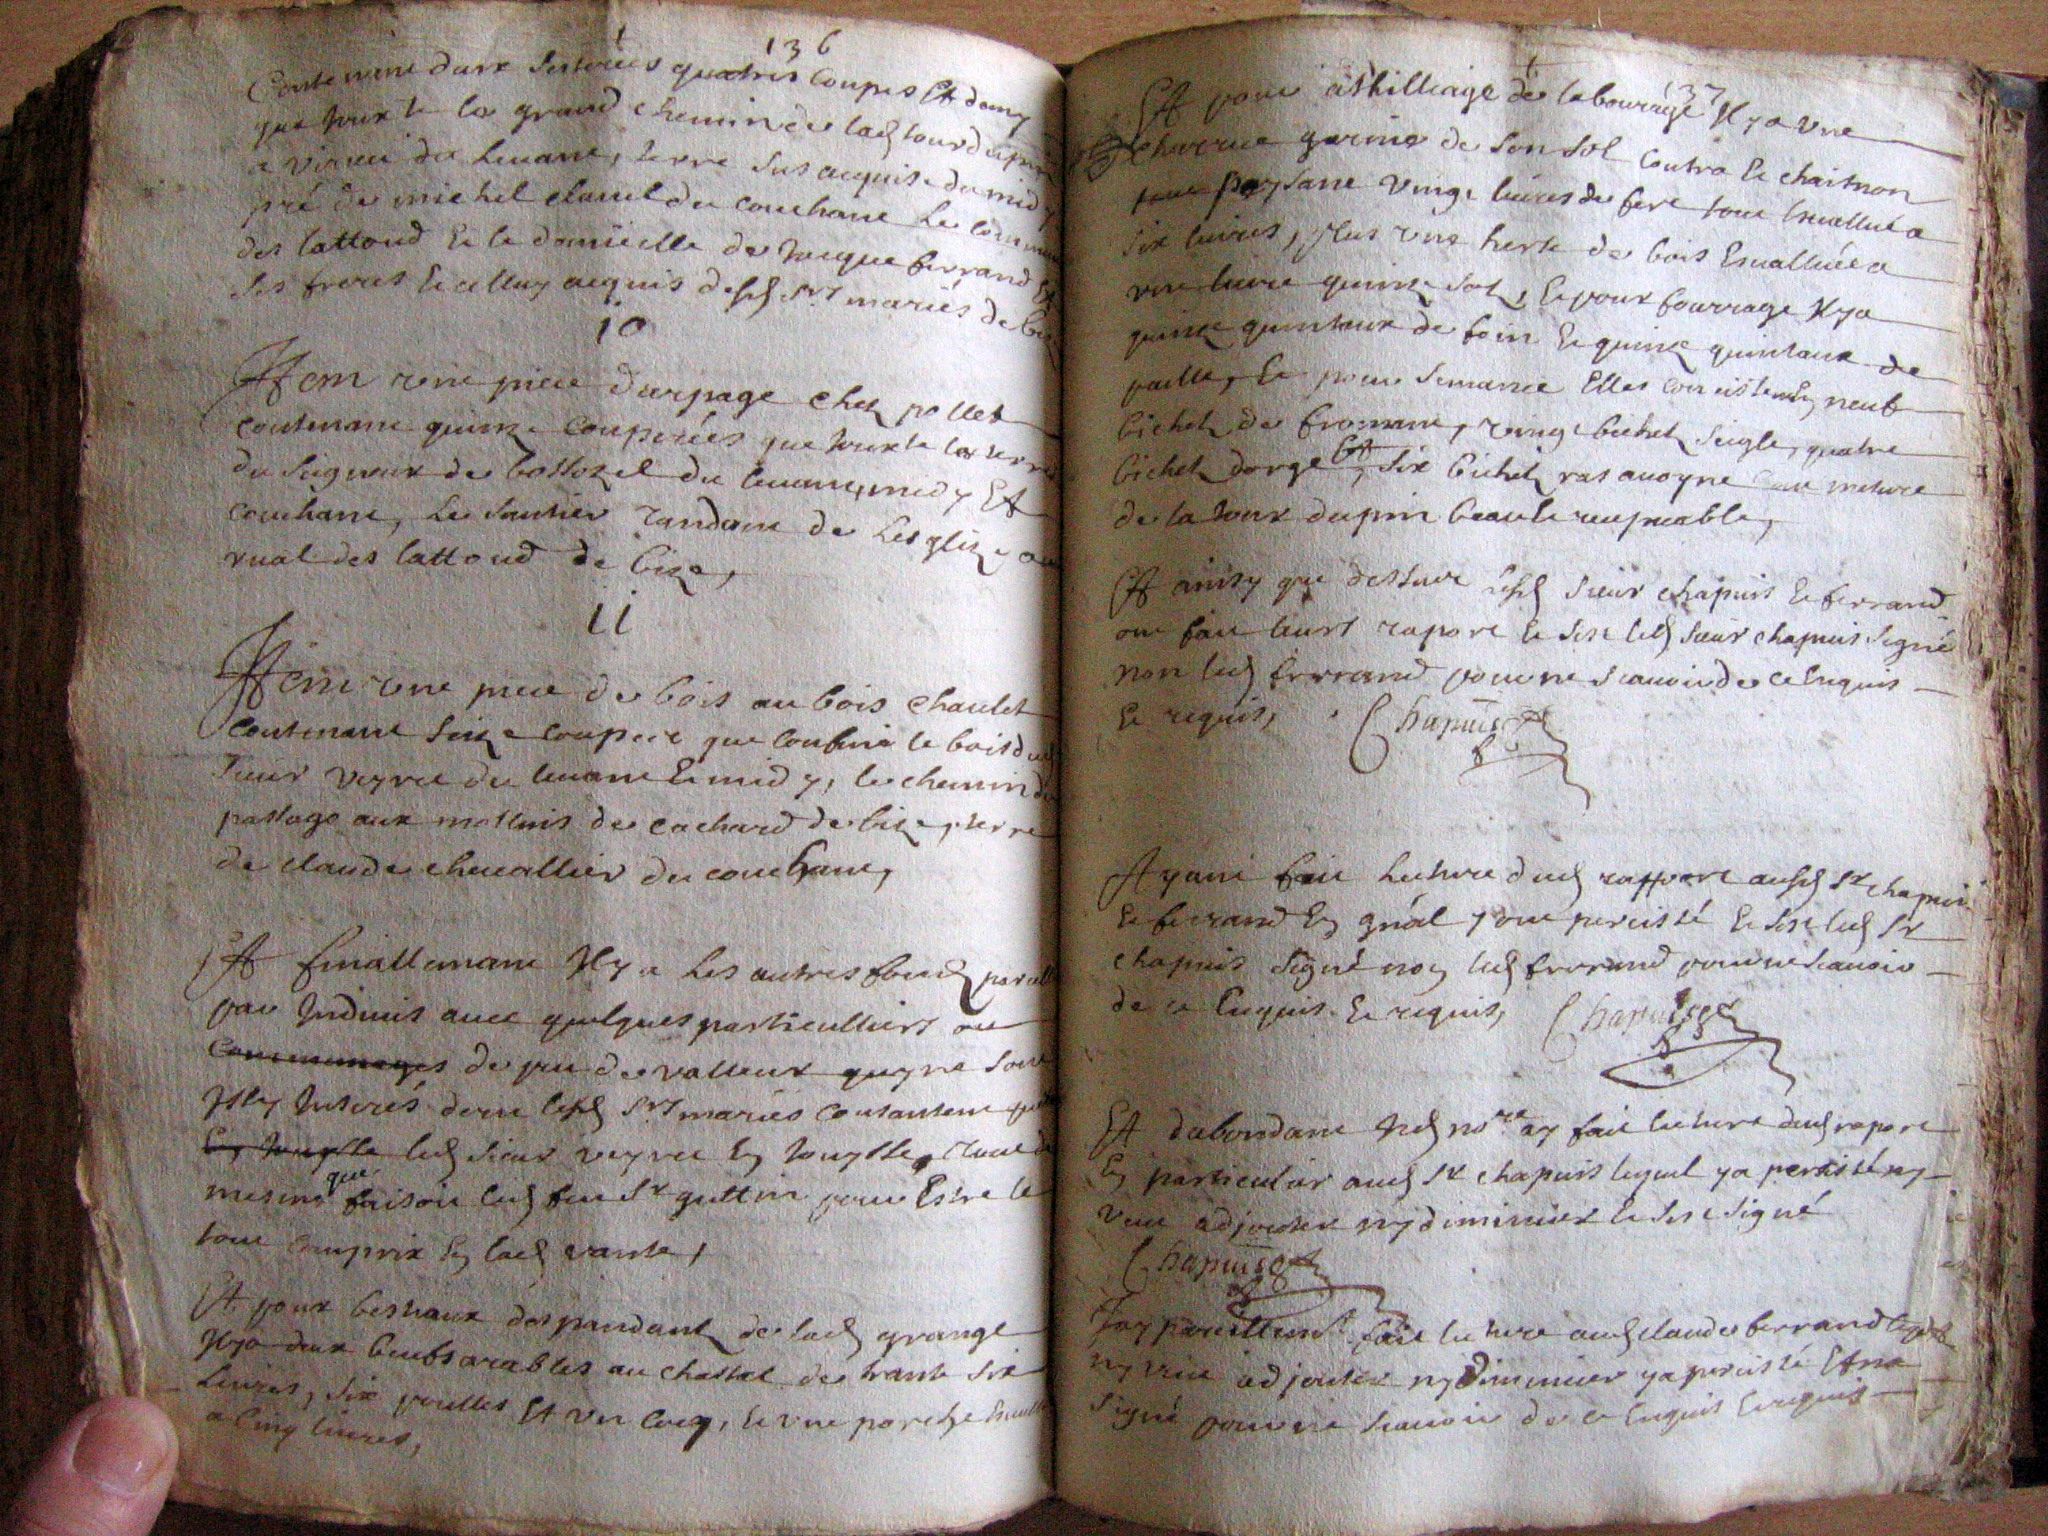 136
Contenant deux sesterées quatres coupes Et demy
que jouxte le grand chemin de lad tour dupin
a virieu du levant, terre sus acquise du midy
pré de michel clavel du couchant Le commun
des lattoud Et le domicille de Jacque ferrand Et
ses freres Et celluy acquis desd srs mariés de bize
10
Item une piece d'arpage chez pollet
contenant quinze couperées que jouxte la terre
du seigneur de bossozel du levant, midy Et
couchant, Le sentier randant de Leglize au
rual des lattoud de bize,
11
Item une piece de bois au bois chaulet
contenant seize couperé que confine le bois dud
sieur veyret du levant Et midy, le chemin de
passage aux mollins de cachard de bize, terre
de claude chevallier du couchant,
Et finallemant Il y a Les autres fonds
par Indivis avec quelques particulliers ou
communages de peu de valleur qu'y ne sont
Icy Inserés dont lesd srs mariés
En jouysse led sieur veyret En jouysse, tout de
mesme que faisoit led feu sr guttin pour Estre le
tout comprix En lad vante,
Et pour bestiaux despandant de lad grange
Il y a deux beufs arables au chastal de trante six
Livres, six poulles Et un coq, Et une porche
a cinq livres,
137
Et pour athilliage de labourage Il y a une
charrue garnie de son sol contra Et chaisnon
tout paysant vingt livres de fert tout Esvallué a
six livres, plus une herse de bois Esvalluée a
une livre quinze sol, Et pour fourrage Il y a
quinze quintaux de foin Et quinze quintaux de
paille, Et pour semance Elles consistent En neuf
bichet de fromant, vingt bichet seigle, quatre
bichet dorge Et, six bichet ras avoyne mesure
de la tour dupin beau Et recepvable,
Et ainsy que dessus lesd sieur chapuis Et ferrand
ont fait leurs raport Et s'est led sieur chapuis signé
non led ferrand pour ne scavoir de ce Enquis
Et requis, Chapuis
Ayant fait Lecture dud rapport ausd sr chapuis
Et ferrand En gnál y ont percisté Et s'est led sr
chapuis signé non led ferrand pour ne scavoir
de ce Enquis Et requis, Chapuis
Et dabondant Jed nore ay fait lecture dud raport
En particulier aud sr chapuis lequel y a percisté ny
veut adjouter ny diminuer Et s'est signé
Chapuis
Jay pareillemt fait lecture aud claude ferrand
ny veut adjouter ny diminuer y a percisté Et na
signé pour ne scavoir de ce Enquis Et requis